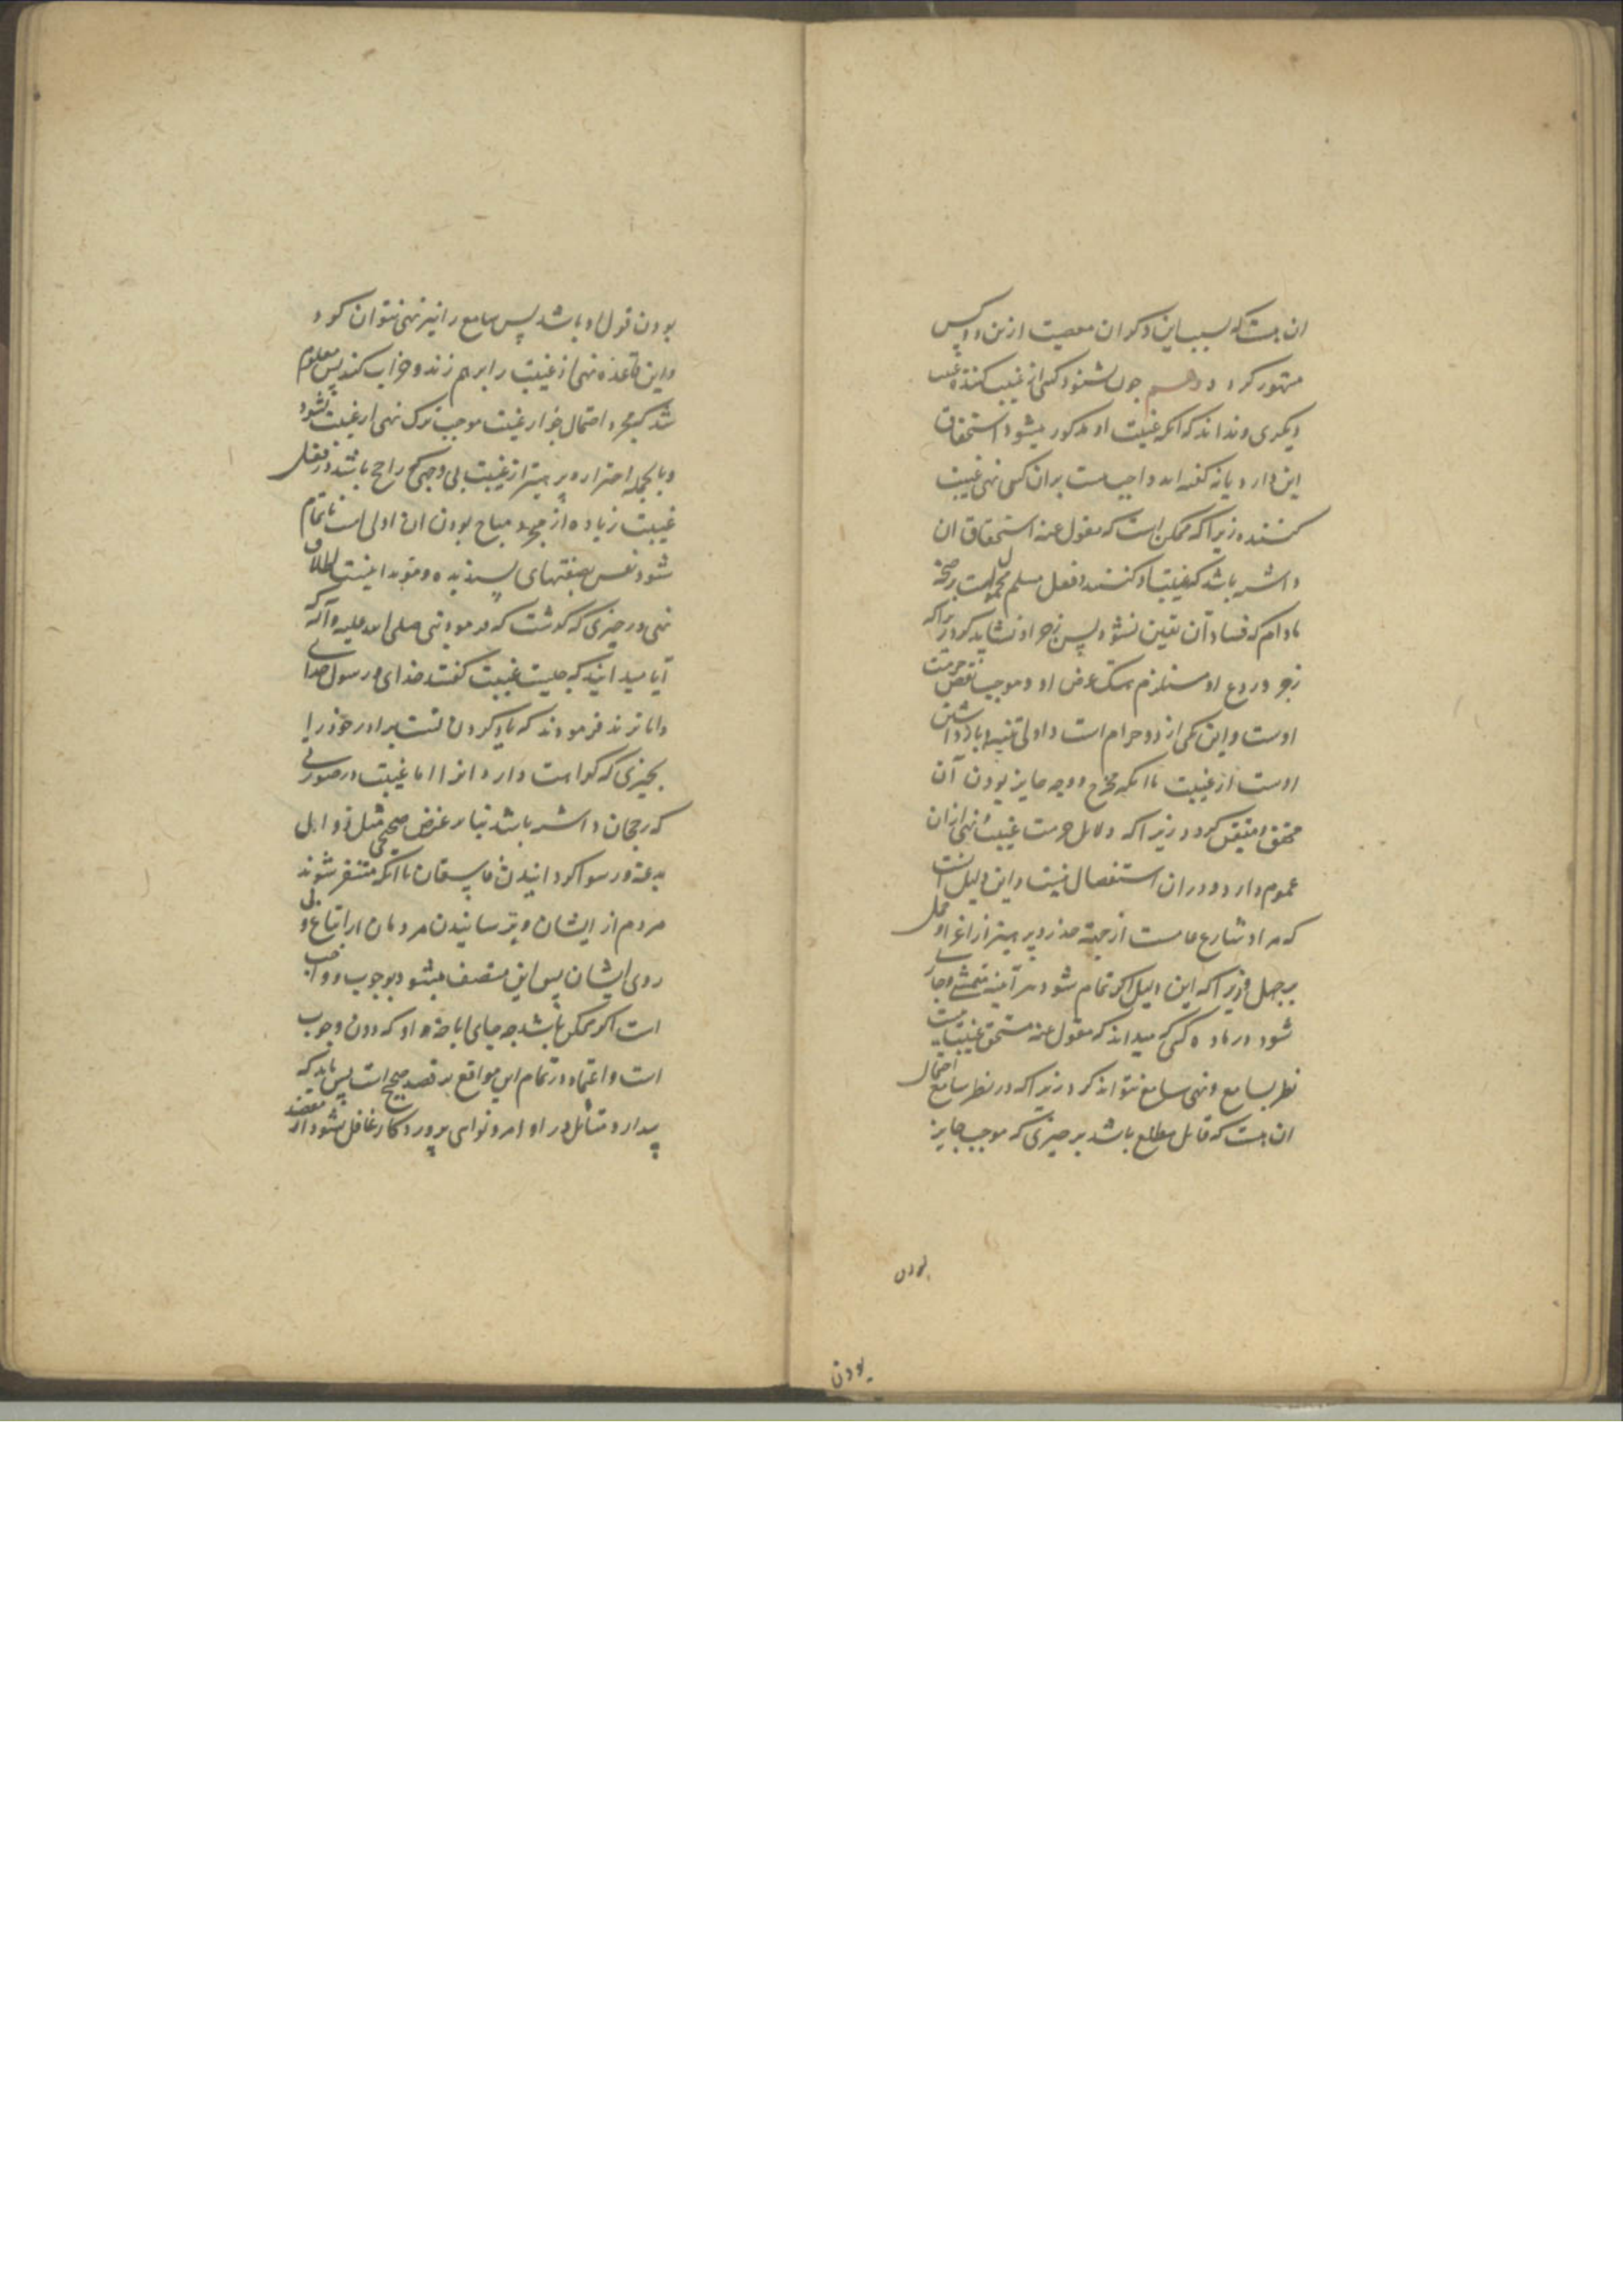 ان هست که بسبب این ذکر ان معصیت ازین دو کس
مشهور کردد دوهم چون بشنود کسی از غیبت کننده غیبت
دیکری و نداند که انکه غیبت او مذکور میشود استحقاق
این دارد یا نه گفته اند واجبست بران کس نهی غیبت
کننده زیرا که ممکن است که مقول عنه استحقاق ان
داشته باشد که غیبت او کنند و فعل مسلم محمولست بر صحة
مادام که فساد آن یقین نشود پس زجر او نشاید کرد زیراکه
زجر و ردع او مستلزم هتک عرض او و موجب نقص حرمت
اوست و این یکی از دو حرام است و اولی تنبیه و بازداشتن
اوست از غیبت تا انکه مخرج و وجه جایز بودن آن
محقق و متیقن کردد زیرا که دلایل حرمت غیبت و نهی ازان
عموم دارد و دران استفصال نیست و این دلیل است
که مراد شارع عامست از جهة حذر و پرهیز از اغراء محل
بر جهل و زیرا که این دلیل اکر تمام شود هر آینه متمشی و جاری
شود در ماده کسی که میداند که مقول عنه مستحق غیبت نیست
نظر بسامع و نهی سامع نتواند کرد زیرا که در نظر سامع احتمال
ان هست که قایل مطلع باشد بر چیزی که موجب جایز
بودن
بودن
بودن قول او باشد پس سامع را نیز نهی نتوان کرد
و این قاعده نهی از غیبت را برهم زند و خراب کند پس معلوم
شد که مجرد احتمال جواز غیبت موجب ترک نهی از غیبت نشود
و بالجمله احتراز و پرهیز از غیبت بی وجهی که راجح باشد در فعل
غیبت زیاده از مجرد مباح بودن ان اولی است تا تمام
شود نفس بصفتهای پسندیده و مؤید اینست اطلاق
نهی در چیزی که گذشت که فرمود نبی صلی الله علیه و آله که
آیا میدانید که چیست غیبت گفتند خدای و رسول خدای
داناترند فرمودند که یاد کردن تست برادر خود را
بچیزی که کراهت دارد انرا اما غیبت در صورتی
که رجحان داشته باشد بنابر غرض صحیحی مثل رد اهل
بدعة و رسوا کردانیدن فاسقان تا انکه متنفر شوند
مردم از ایشان و ترسانیدن مردمان از اتباع و پی
روی ایشان پس این متصف میشود بوجوب و واجب
است اکر ممکن باشد چه جای اباحة او که دون وجوب
است و اعتماد در تمام این مواقع بر قصد صحیح است پس باید که
بیدار و متأمل در اوامر و نواهی پروردکار غافل نشود از مقصد